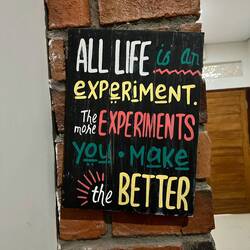 ALL LIFE is an
EXPERIMENT.
The more EXPERIMENTS
you • MAKE
the BETTER